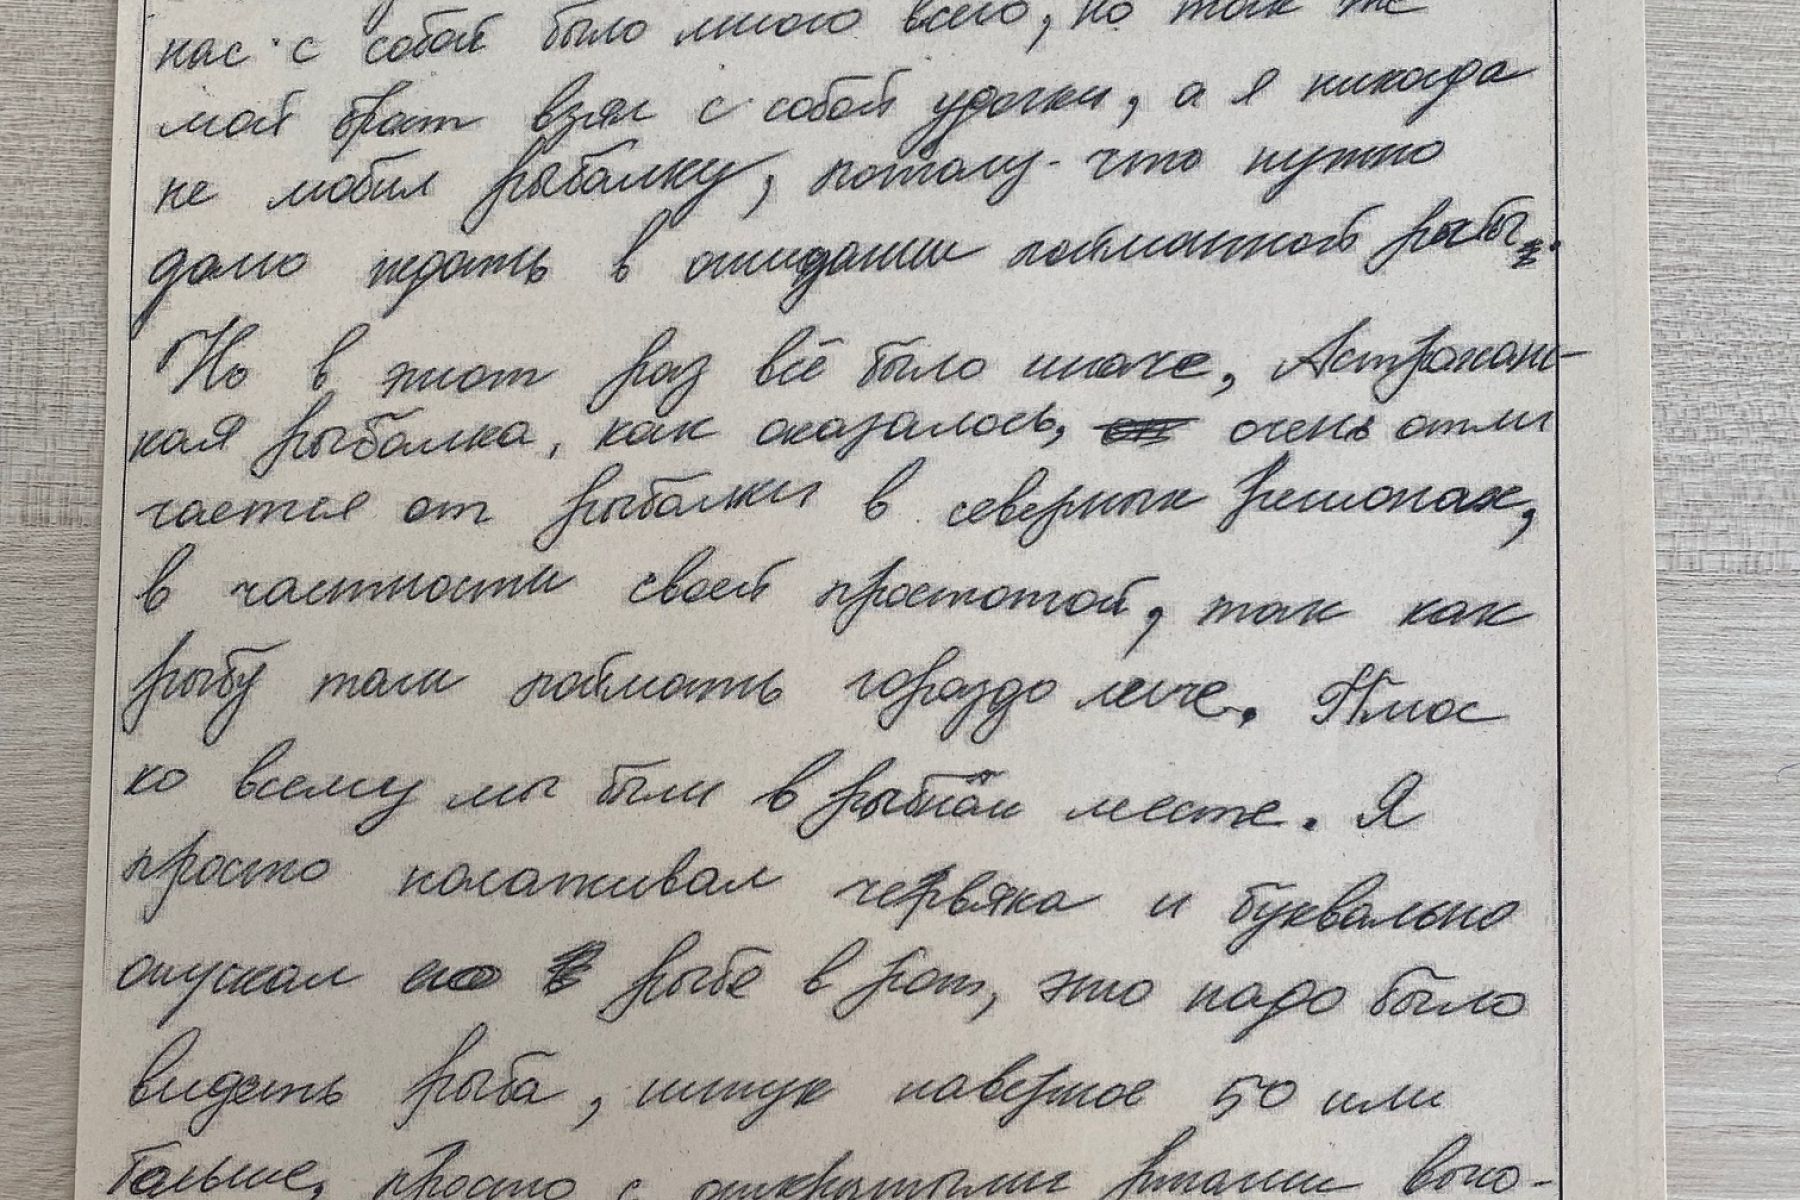 нас с собой было много всего, но так же
мой брат взял с собой удочки, а я никогда
не любил рыбалку, потому-что нужно
долго ждать в ожидании пойманной рыбы.
Но в этот раз всё было иначе, Астрахан-
кая рыбалка, как оказалось, очень отли
чается от рыбалки в северных регионах,
в частности своей простотой, так как
рыбу там поймать гораздо легче. Плюс
ко всему мы были в рыбном месте. Я
просто насаживал червяка и буквально
опускал его рыбе в рот, это надо было
видеть рыба, штук наверное 50 или
больше, просто с открытыми ртами выпо-